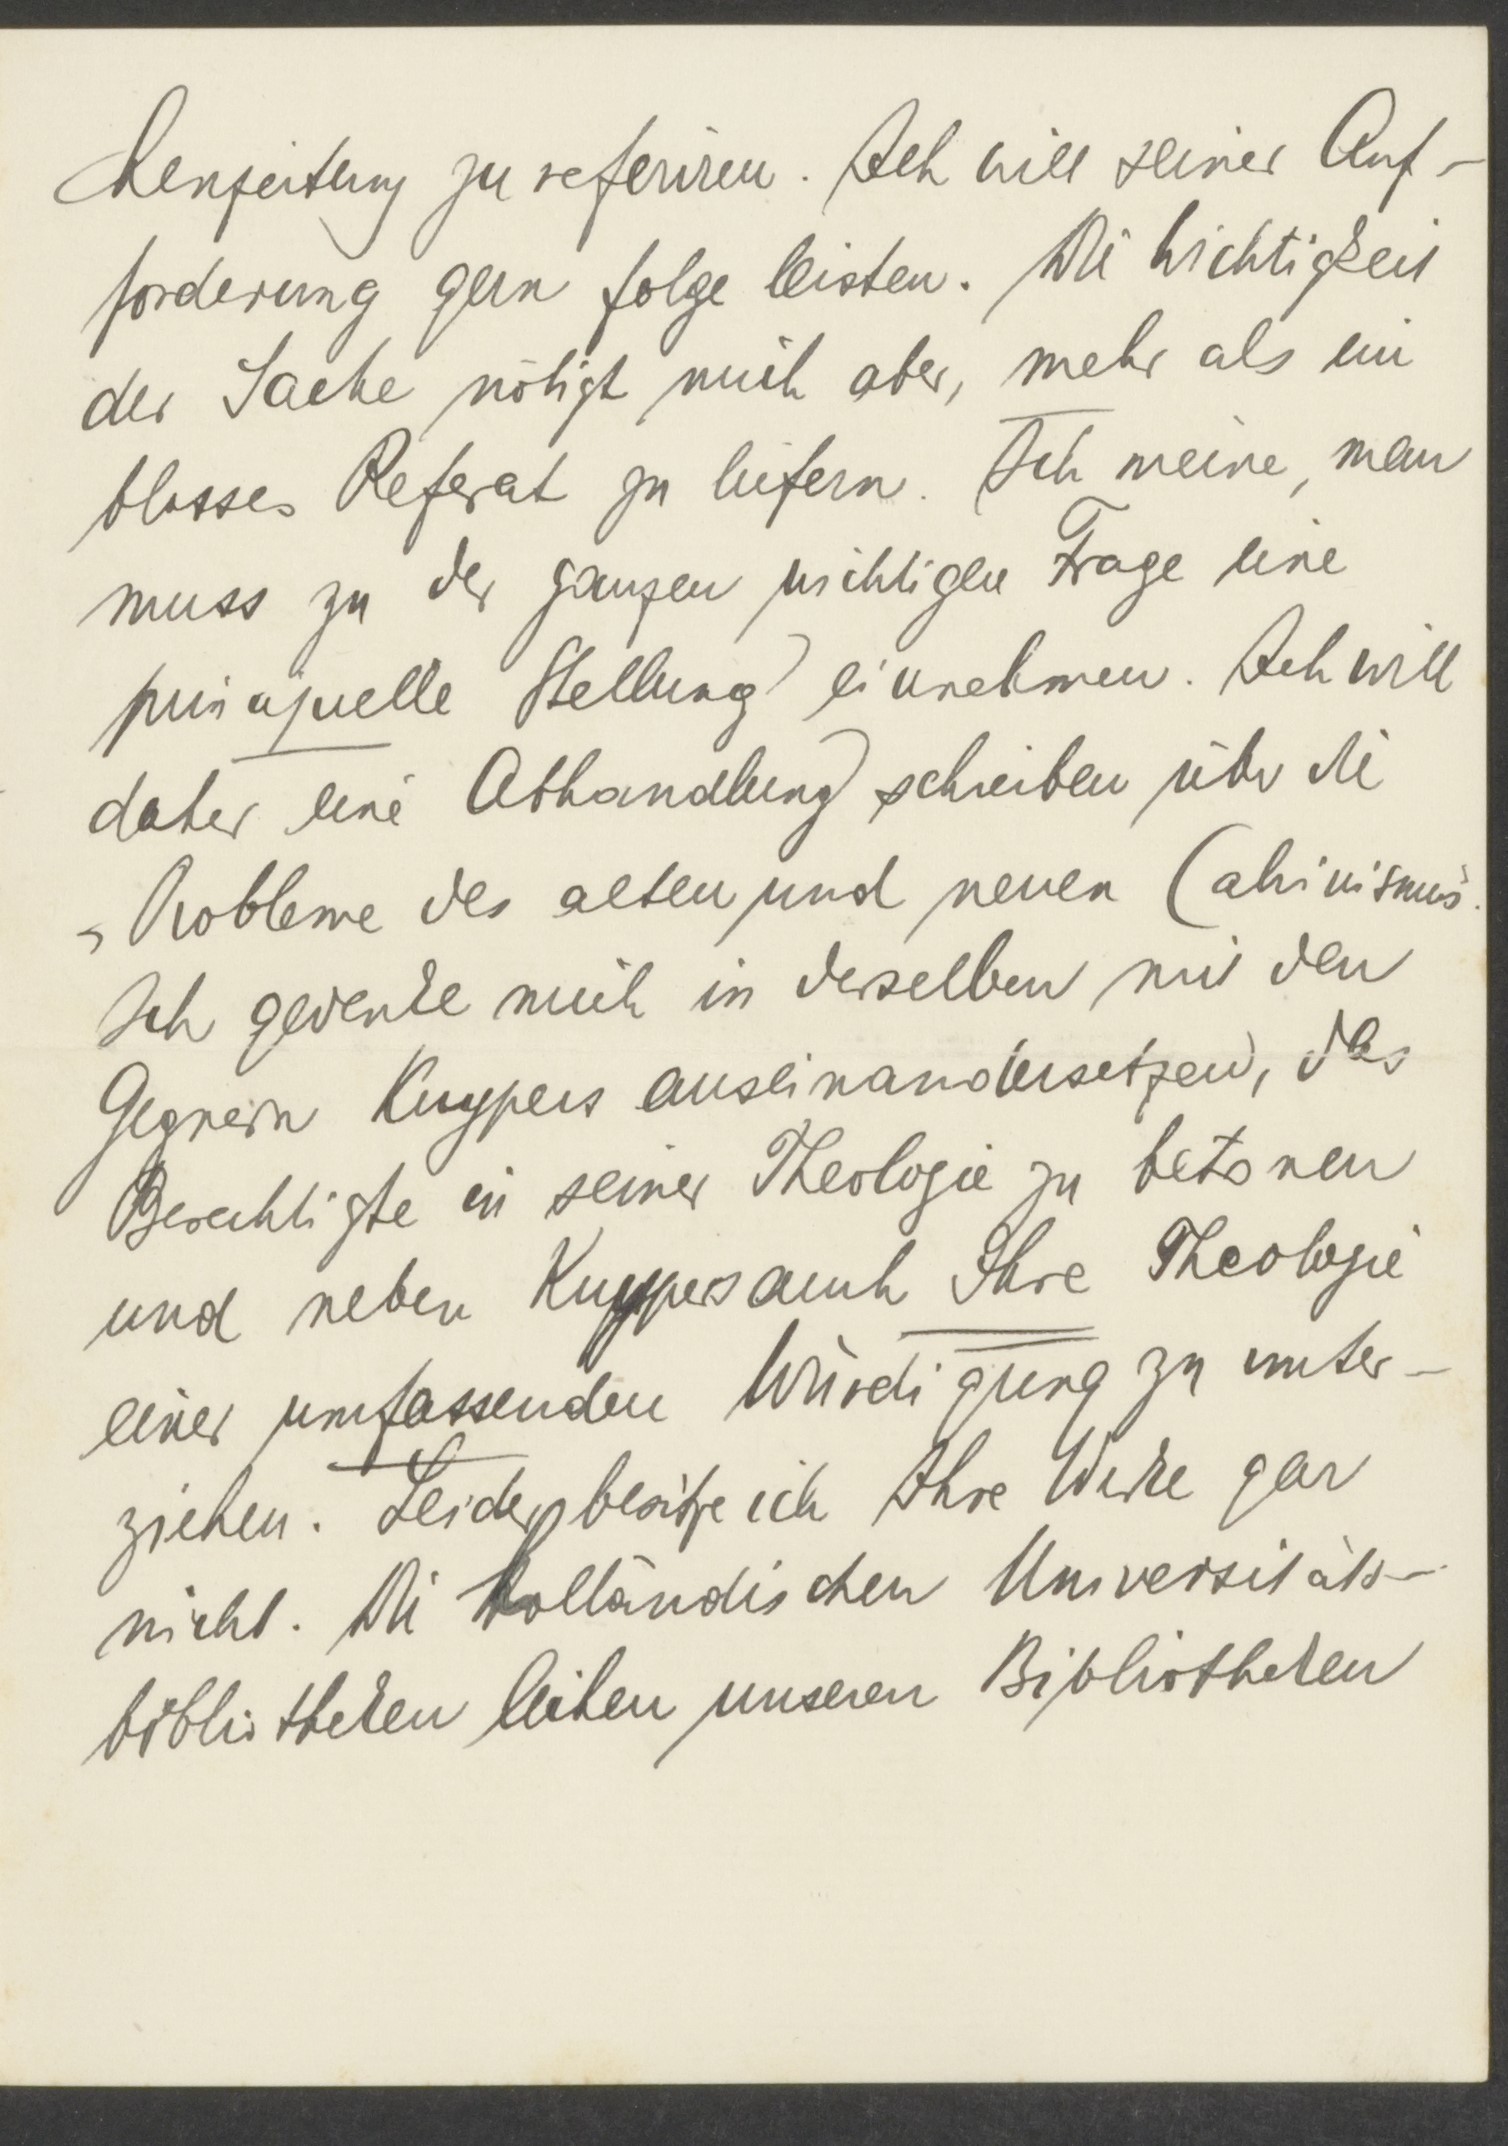 chenzeitung zu referiren. Ich will seiner Auf-
forderung gern folge leisten. Die Wichtigkeit
der Sache nötigt mich aber, mehr als ein
blosses Referat zu liefern. Ich meine, man
muss zu der ganzen wichtigen Frage eine
prinzipielle Stellung einnehmen. Ich will
daher eine Abhandlung schreiben über die
„Probleme des alten und neuen Calvinismus".
Ich gedenke mich in derselben mit den
Gegnern Kuypers auseinandersetzen, das
Berechtigte in seiner Theologie zu betonen
und neben Kuypers auch Ihre Theologie
einer umfassenden Würdigung zu unter-
ziehen. Leider besitze ich Ihre Werke gar
nicht. Die holländischen Universitäts-
bibliotheken leihen unseren Bibliotheken